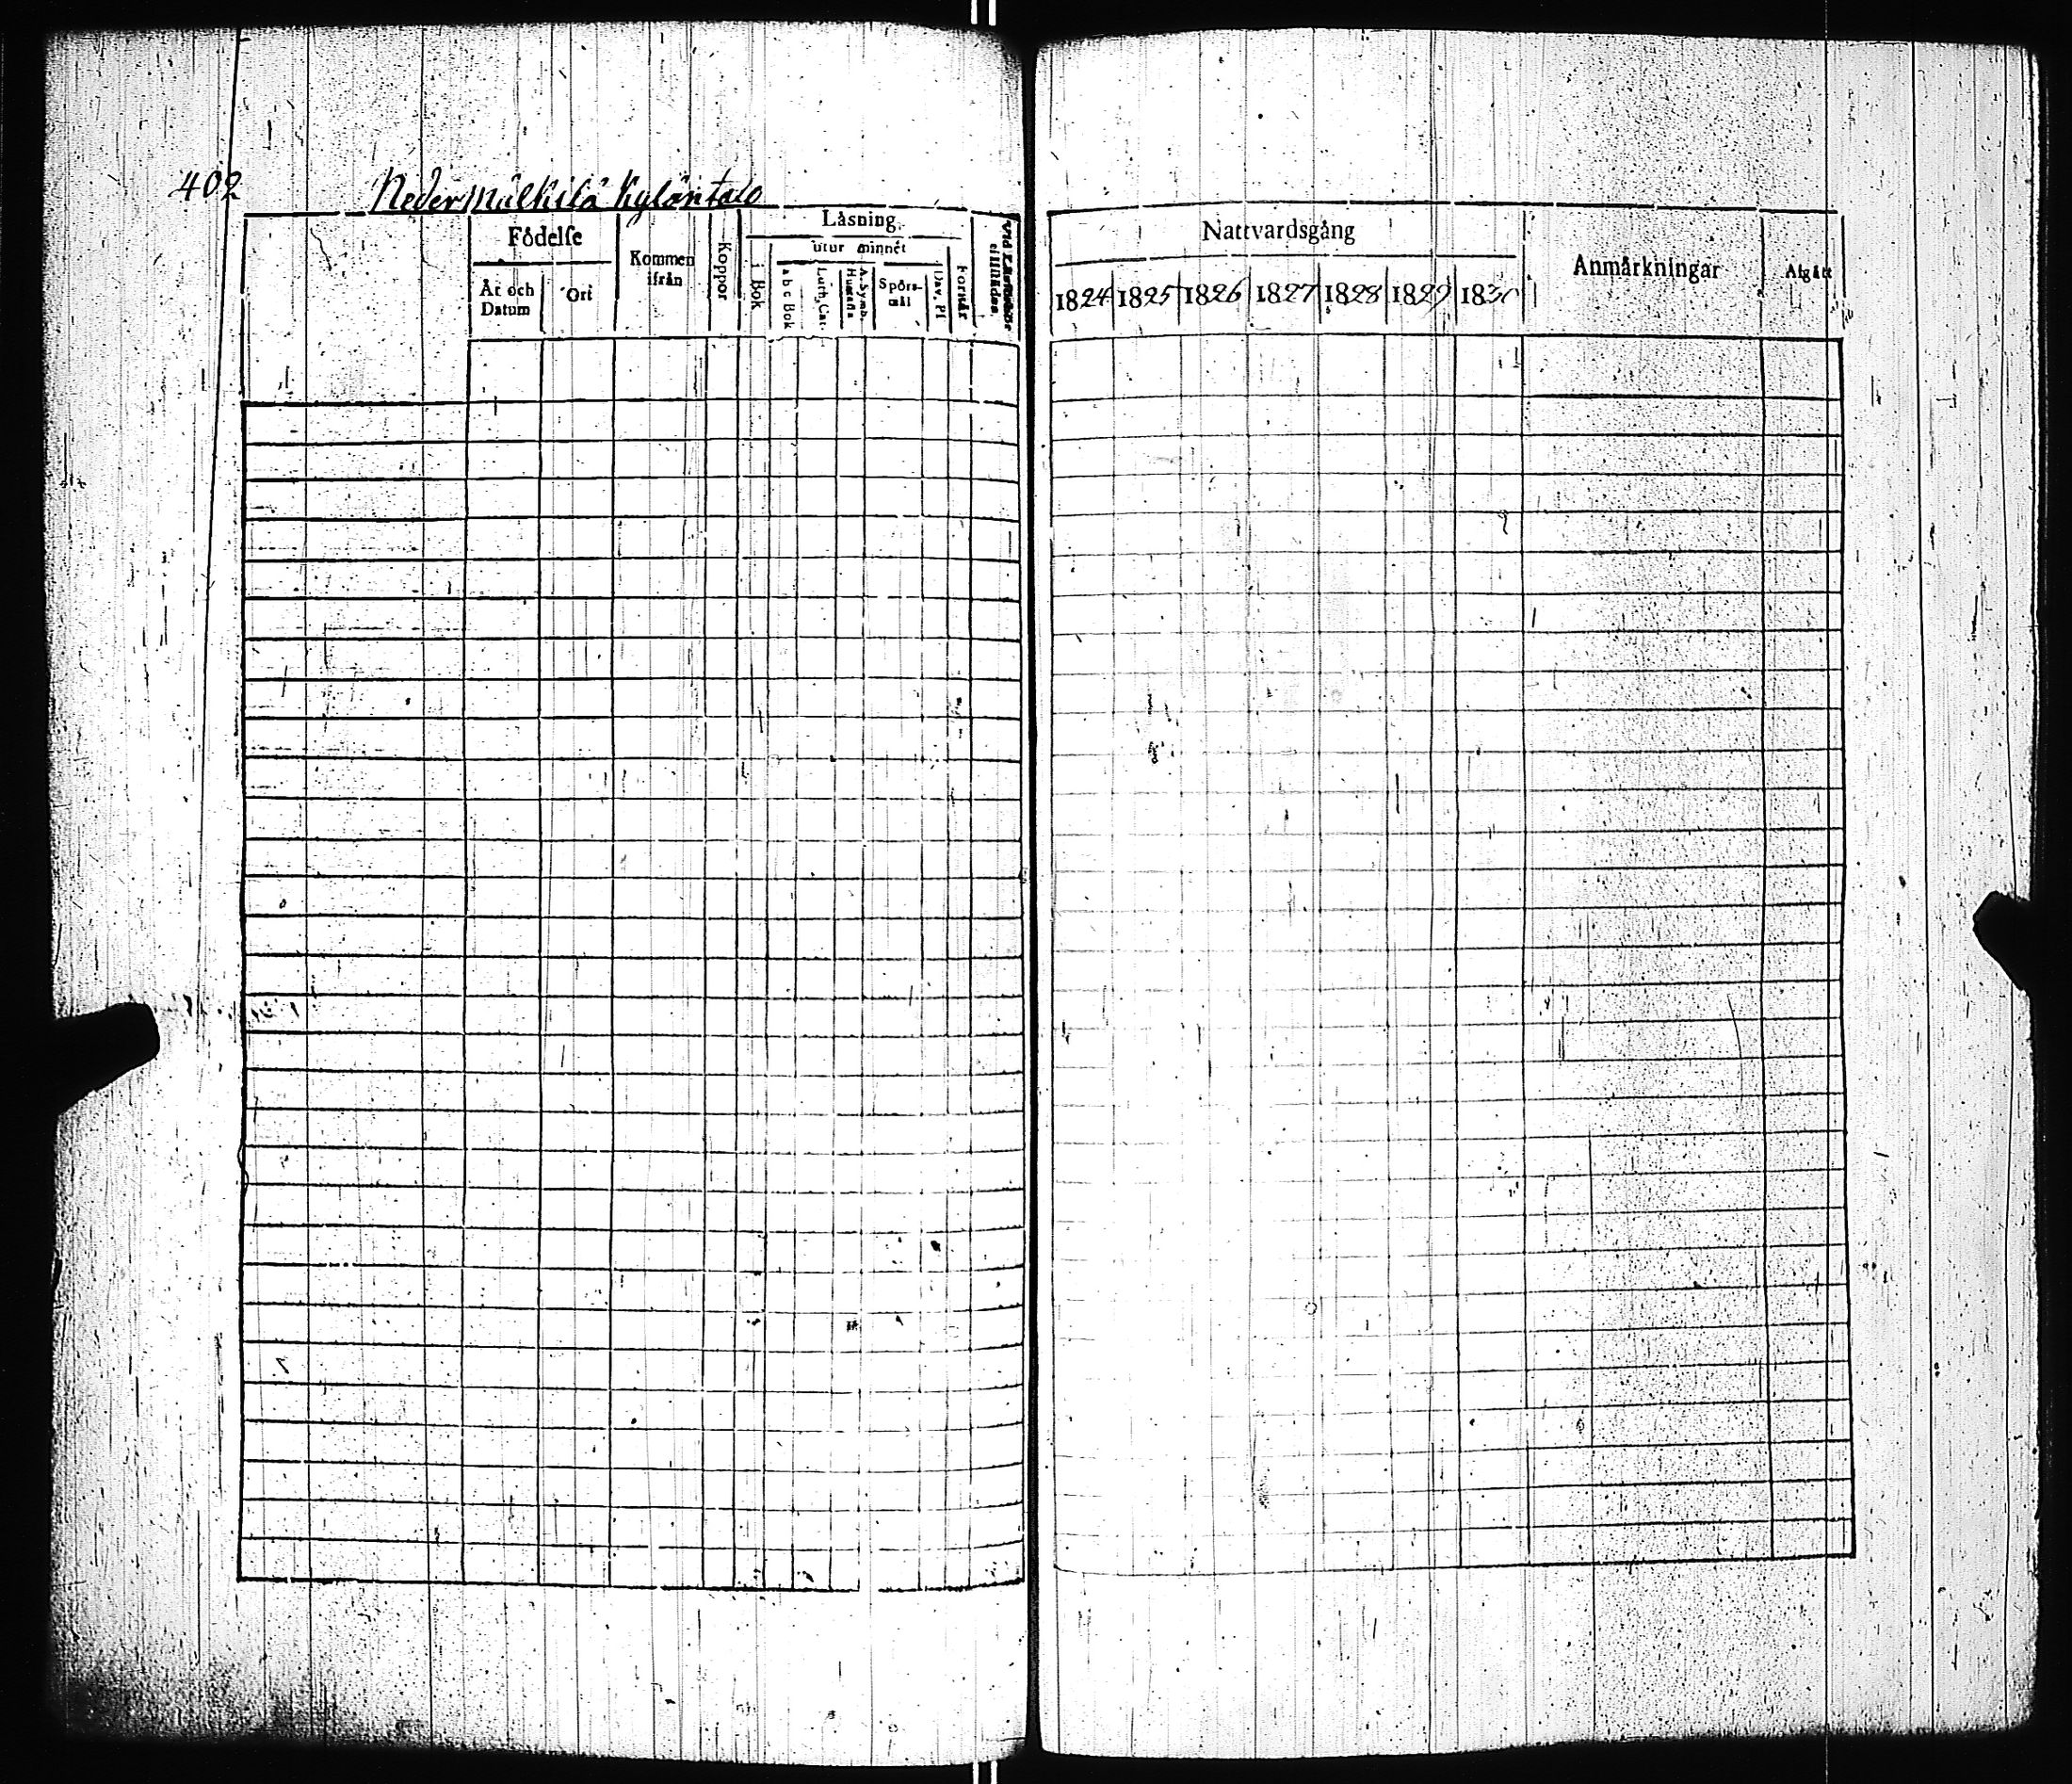 402
Neder Mälkilä Kyläntalo
Födelse
År och Datum
Ort
Kommen ifrån
Koppor
Läsning
i Bok
utur minnet
a b c Bok
Luth. Cat.
A. Symb.
Spörsmål
Dav. Ps
Förstår
Nattvardsgång
1824 1825 1826 1827 1828 1829 1830
Anmärkningar
Afgått